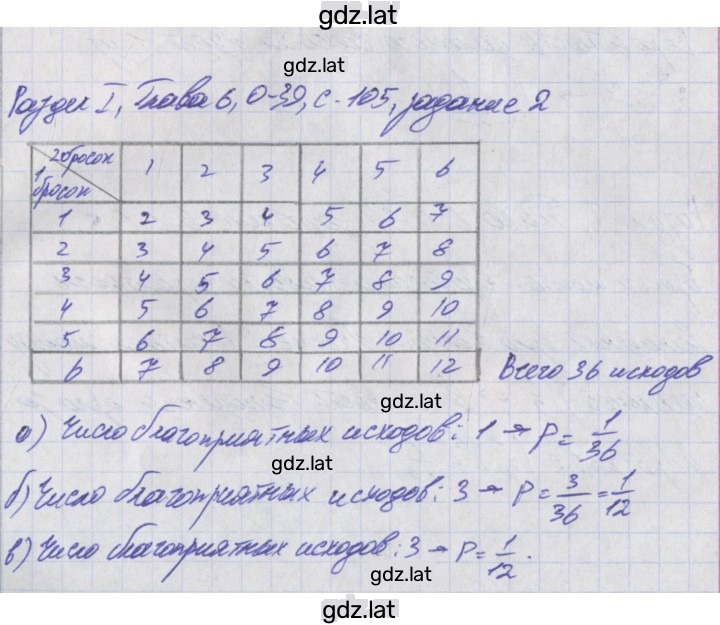 gdz.lat
gdz.lat
Раздел I, Глава 6, О-39, с-105, задание 2
2бросок 1 2 3 4 5 6
1бросок
1 2 3 4 5 6 7
2 3 4 5 6 7 8
3 4 5 6 7 8 9
4 5 6 7 8 9 10
5 6 7 8 9 10 11
6 7 8 9 10 11 12
Всего 36 исходов
gdz.lat
а) Число благоприятных исходов: 1 → P = 1/36
gdz.lat
б) Число благоприятных исходов: 3 → P = 3/36 = 1/12
в) Число благоприятных исходов: 3 → P = 1/12.
gdz.lat
gdz.lat